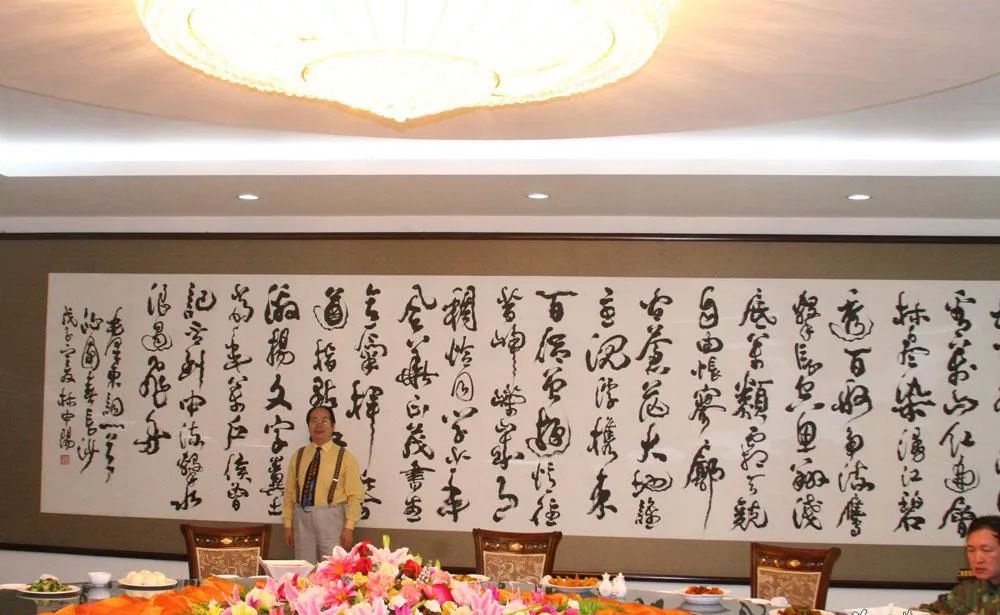 看万山红遍层
林尽染漫江碧
透百舸争流鹰
击长空鱼翔浅
底万类霜天竞
自由怅寥廓
问苍茫大地谁
主沉浮携来
百侣曾游忆往
昔峥嵘岁月
稠恰同学少年
风华正茂书生
意气挥
遒指点
激扬文字粪土
当年万户侯曾
记否到中流击水
浪遏飞舟
毛泽东词一首
沁园春长沙
戊子